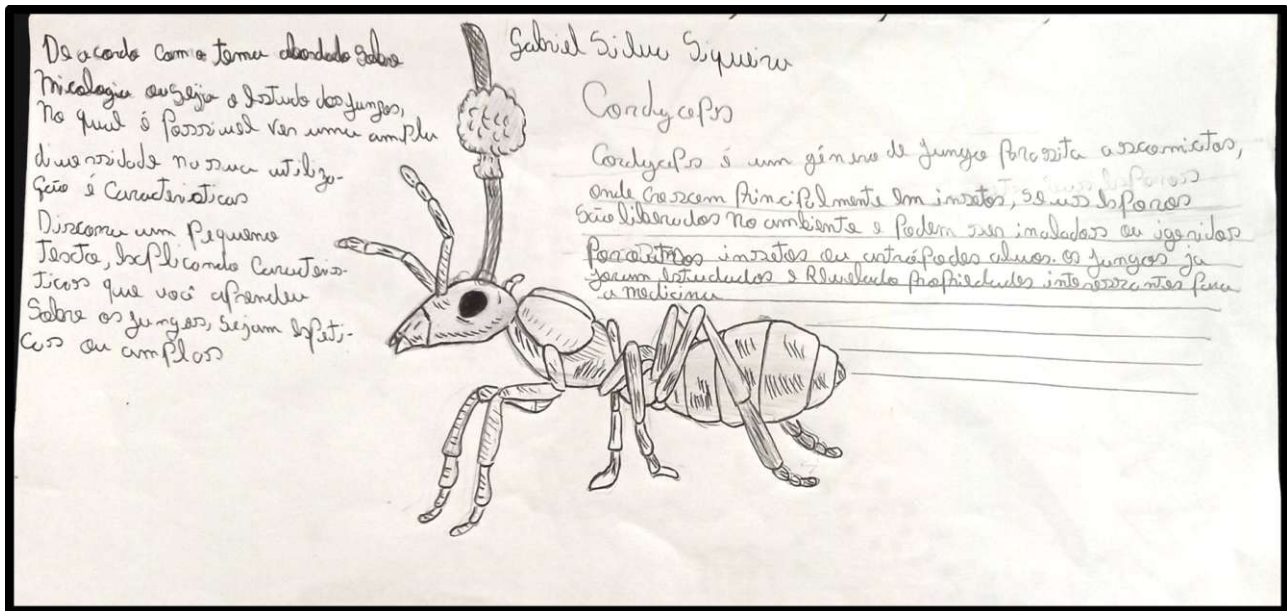 De acordo com o tema abordado sobre
Micologia ou seja o Estudo dos fungos,
No qual é Possivel ver uma ampla
diversidade na sua utiliza-
ção é Caracteristicas
Discorra um Pequeno
Texto, Explicando Caracteris-
ticas que você aprendeu
Sobre os fungos, Sejam Espeti-
cos ou amplos
Gabriel Silva Siqueira
Cordyceps
Cordyceps é um gênero de fungo Parasita ascomicetos,
onde crescem Principalmente em insetos, seus Esporos
São liberados no ambiente e Podem ser inalados ou igeridos
Por outros insetos ou artrópodes alvos. os fungos ja
foram Estudados e Revelado propriedades interessantes para
a medicina